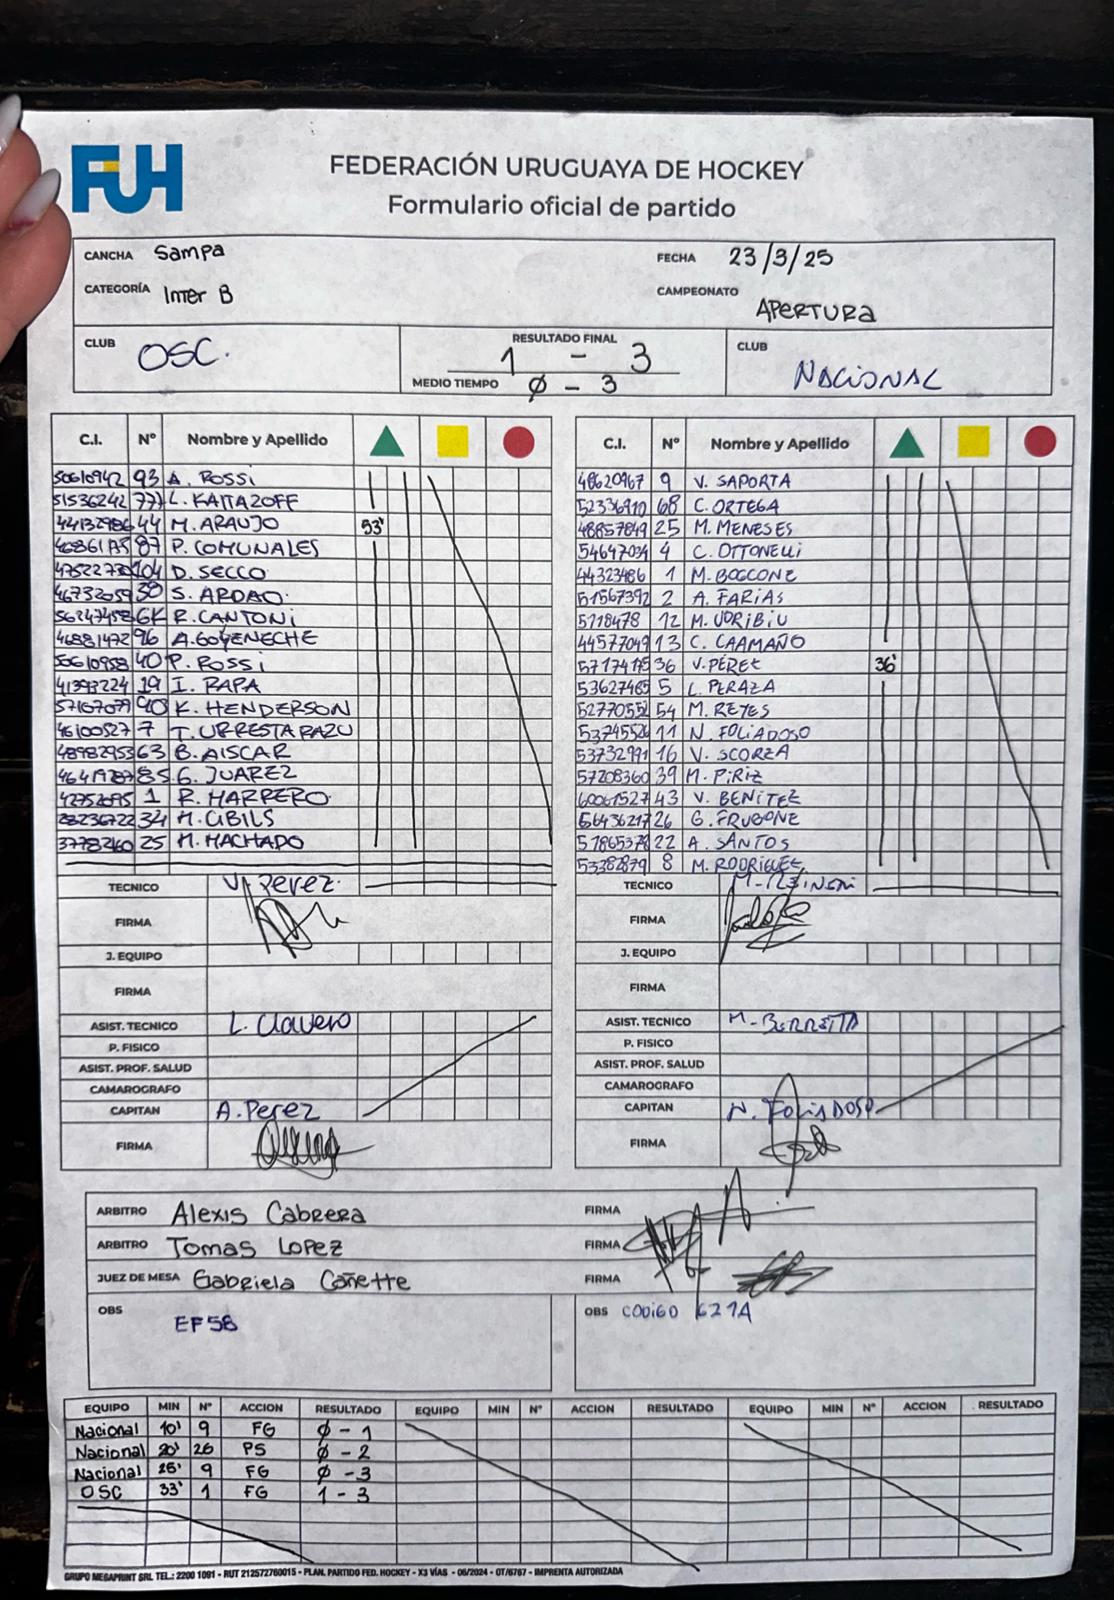 FUH
FEDERACIÓN URUGUAYA DE HOCKEY
Formulario oficial de partido
CANCHA Sampa FECHA 23/3/25
CATEGORÍA Inter B CAMPEONATO APERTURA
CLUB OSC. RESULTADO FINAL 1 - 3 CLUB NACIONAL
MEDIO TIEMPO Ø - 3
C.I. Nº Nombre y Apellido
50610942 93 A. ROSSi
51536242 77 L. KAITAZOFF
44132986 44 M. ARAUJO 53'
87 P. COMUNALES
104 D. SECCO
46732059 30 S. ARDAO
56247458 GK R. CANTONi
46881472 96 A. GOYENECHE
50610958 40 P. ROSSi
41393224 19 I. PAPA
57167079 90 K. HENDERSON
46100527 7 T. URRESTARAZU
48982953 63 B. AISCAR
85 G. JUAREZ
42752095 1 R. HARRERO
28236722 34 M. CIBILS
3778260 25 M. MACHADO
TECNICO V. Perez.
FIRMA
J. EQUIPO
FIRMA
ASIST. TECNICO L. Clavero
P. FISICO
ASIST. PROF. SALUD
CAMAROGRAFO
CAPITAN A. Perez
FIRMA
C.I. Nº Nombre y Apellido
48620967 9 V. SAPORTA
52336910 68 C. ORTEGA
48857849 25 M. MENESES
54647034 4 C. OTTONELLI
44323486 1 M. BOCCONE
51567392 2 A. FARIAS
5118478 12 M. UDRIBIU
44577049 13 C. CAAMAÑO
57174175 36 V. PÉREZ 36'
53627465 5 L. PERAZA
52770552 54 M. REYES
53745526 11 N. FOLIADOSO
53732991 16 V. SCORZA
57208360 39 M. PIRIZ
60061527 43 V. BENITEZ
56436217 26 G. FRUGONE
51865378 22 A. SANTOS
53382879 8 M. RODRIGUEZ
TECNICO
FIRMA
J. EQUIPO
FIRMA
ASIST. TECNICO M. BERRETTA
P. FISICO
ASIST. PROF. SALUD
CAMAROGRAFO
CAPITAN N. FOLIADOSO
FIRMA
ARBITRO Alexis Cabrera FIRMA
ARBITRO Tomas Lopez FIRMA
JUEZ DE MESA Gabriela Cañette FIRMA
OBS EF58
OBS CODIGO 621A
EQUIPO MIN Nº ACCION RESULTADO EQUIPO MIN Nº ACCION RESULTADO EQUIPO MIN Nº ACCION RESULTADO
Nacional 10' 9 FG Ø - 1
Nacional 20' 26 PS Ø - 2
Nacional 25' 9 FG Ø - 3
OSC 33' 1 FG 1 - 3
GRUPO MEGAPRINT SRL TEL.: 2200 1091 - RUT 212572760015 - PLAN. PARTIDO FED. HOCKEY - X3 VÍAS - 06/2024 - OT/6767 - IMPRENTA AUTORIZADA